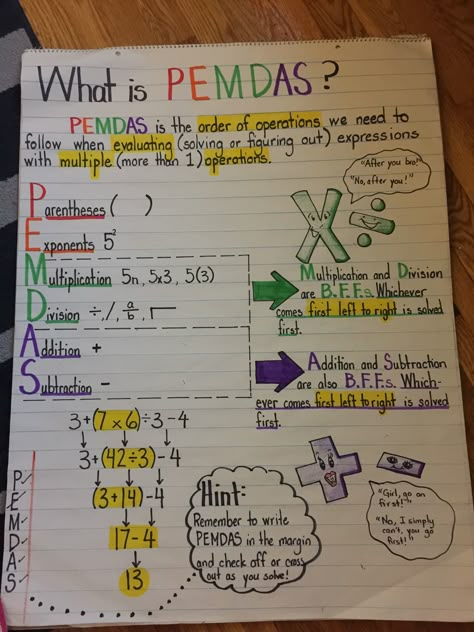 What is PEMDAS?
PEMDAS is the order of operations we need to
follow when evaluating (solving or figuring out) expressions
with multiple (more than 1) operations.
"After you bro!"
"No, after you!"
Parentheses ( )
Exponents 5²
Multiplication 5n, 5x3, 5(3)
Division ÷, /, a/b, ⟌
Addition +
Subtraction -
Multiplication and Division
are B.F.F.s. Whichever
comes first left to right is solved
first.
Addition and Subtraction
are also B.F.F.s. Which-
ever comes first left to right is solved
first.
3+(7 x 6)÷3-4
3+(42÷3)-4
(3+14)-4
17-4
13
P✓
E✓
M✓
D✓
A✓
S✓
Hint:
Remember to write
PEMDAS in the margin
and check off or cross
out as you solve!
"Girl, go on
first!"
"No, I simply
can't, you go
first!"